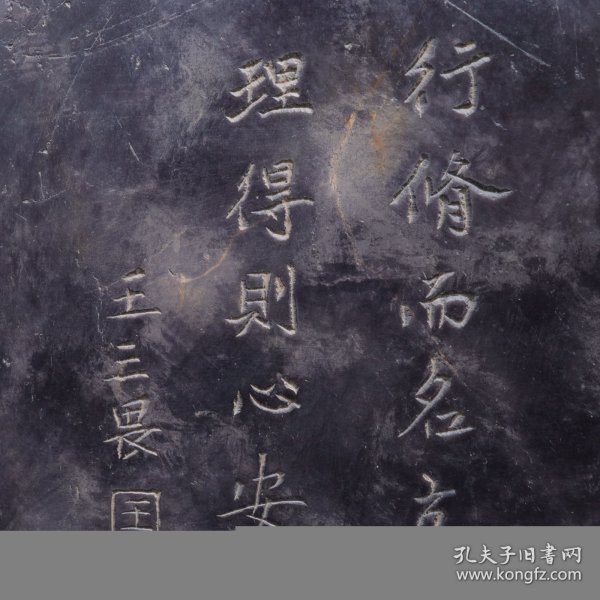 行脩而名立
理得則心安
王三畏
孔夫子旧书网
www.kongfz.com